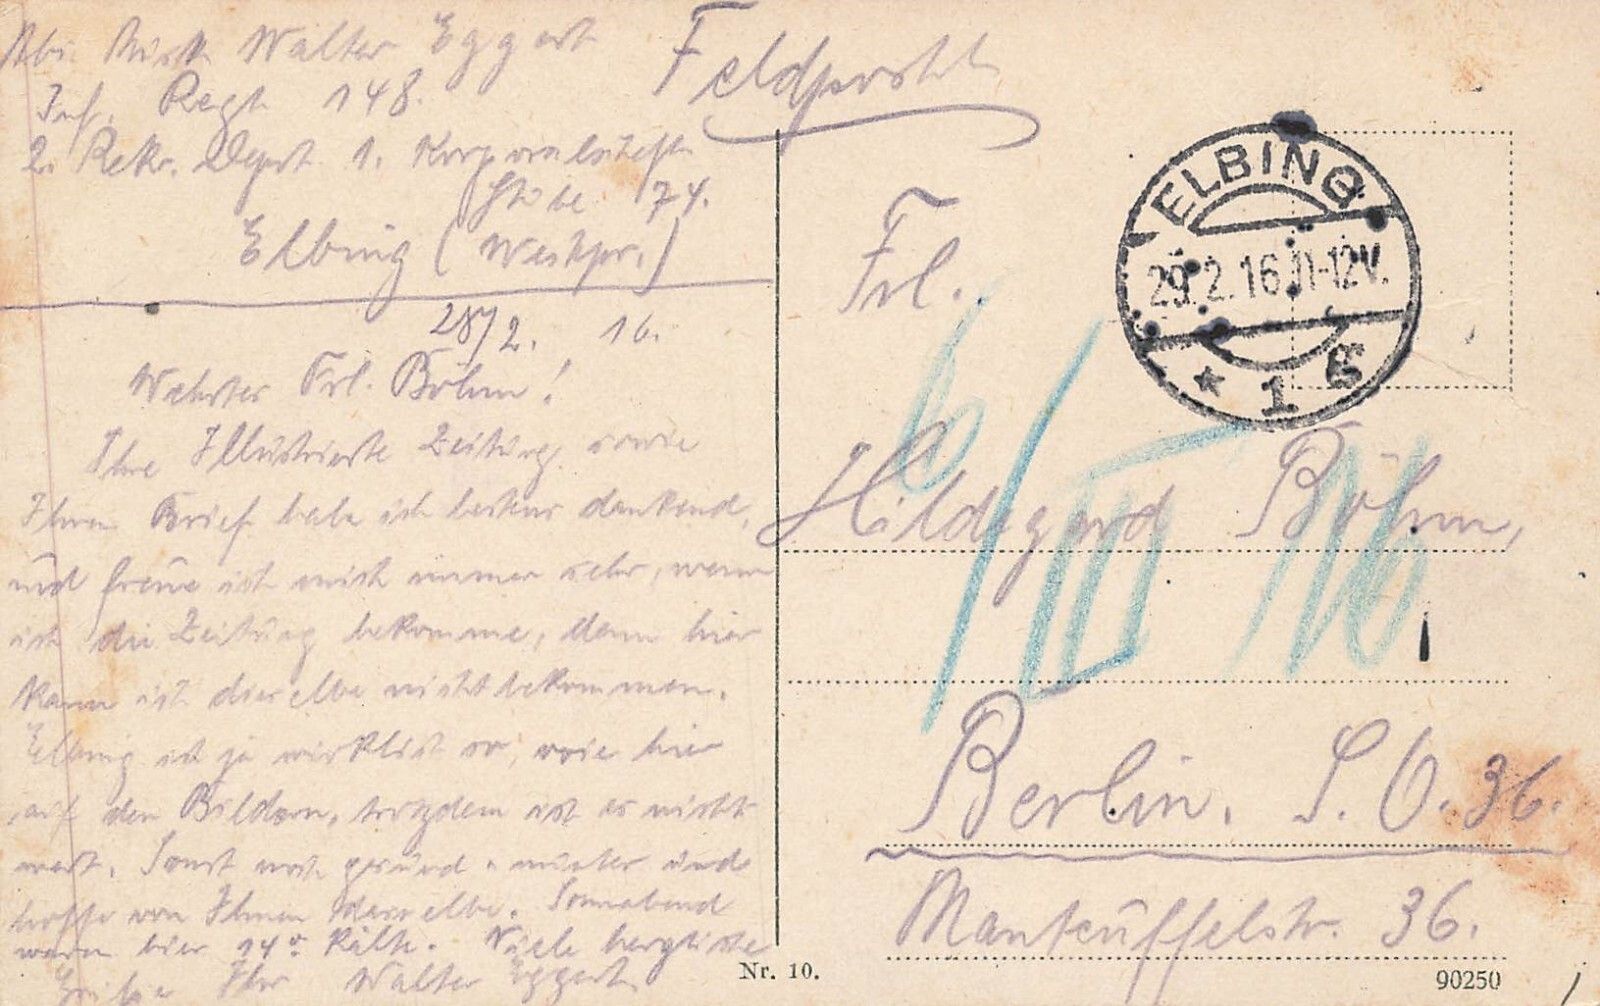 Abs. Musk. Walter Eggert
Inf. Regt. 148.
2. Rekr. Depot. 1. Korporalschaft
Stube 74.
Elbing (Westpr.)
28/2. 16.
Wehrter Frl. Böhm!
Ihre Illustrierte Zeitung sowie
Ihren Brief habe ich bestens dankend,
und freue ich mich immer sehr, wenn
ich die Zeitung bekomme, denn hier
kann ich dieselbe nicht bekommen.
Elbing ist ja wirklich so, wie hier
auf den Bildern, trozdem ist es nicht
wert. Sonst noch gesund u. munter und
hoffe von Ihnen dasselbe. Sonnabend
waren hier 14° Kälte. Viele herzliche
Grüße Ihr Walter Eggert
Feldpostk
ELBING
29.2.16.11-12V.
* 1 g
Frl.
Hildegard Böhm,
6/III 16
Berlin. S. O. 36.
Manteuffelstr. 36.
Nr. 10.
90250